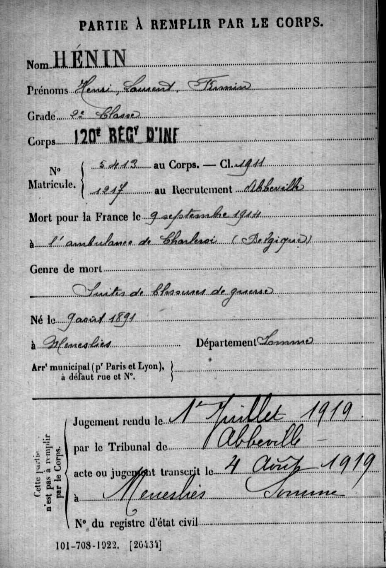 PARTIE À REMPLIR PAR LE CORPS.
Nom HÉNIN
Prénoms Henri, Laurent, Firmin
Grade 2e Classe
Corps 120e REGt D'INF
N° Matricule. { 5413 au Corps. — Cl. 1911
1217 au Recrutement Abbeville
Mort pour la France le 9 septembre 1914
à l'ambulance de Charleroi (Belgique)
Genre de mort
Suites de blessures de guerre
Né le 9 août 1891
à Meneslies Département Somme
Arrt municipal (pr Paris et Lyon), }
à défaut rue et N°.
Cette partie n'est pas à remplir par le Corps.
Jugement rendu le 1er Juillet 1919
par le Tribunal de Abbeville
acte ou jugement transcrit le 4 Août 1919
à Meneslies Somme
N° du registre d'état civil
101-708-1922. [26434]